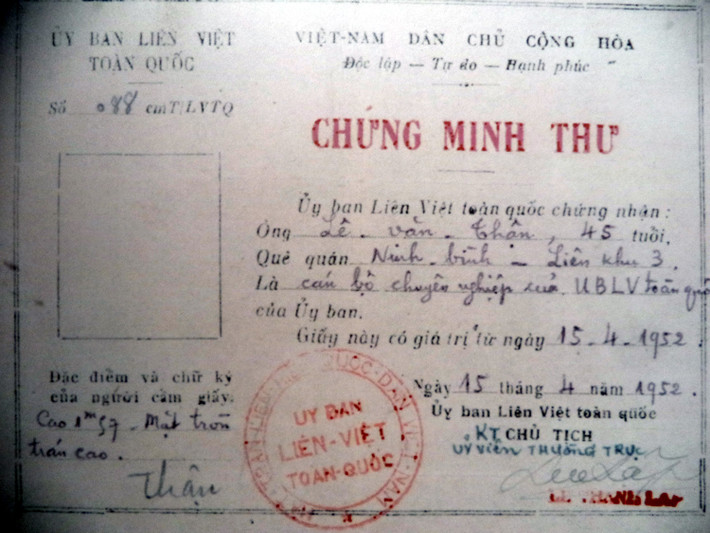 ỦY BAN LIÊN VIỆT
TOÀN QUỐC
Số 088 cmT/LVTQ
VIỆT-NAM DÂN CHỦ CỘNG HÒA
Độc lập — Tự do — Hạnh phúc
CHỨNG MINH THƯ
Ủy ban Liên Việt toàn quốc chứng nhận :
Ông Lê văn Thận, 45 tuổi,
Quê quán Ninh-bình - Liên khu 3.
Là cán bộ chuyên nghiệp của UBLV toàn quốc
của Ủy ban.
Giấy này có giá trị từ ngày 15-4-1952.
Đặc điểm và chữ ký
của người cầm giấy.
Cao 1m57 - Mặt tròn
trán cao.
Thận
Ngày 15 tháng 4 năm 1952.
Ủy ban Liên Việt toàn quốc
KT CHỦ TỊCH
UỶ VIÊN THƯỜNG TRỰC
UỶ BAN
LIÊN-VIỆT
TOÀN-QUỐC
QUỐC-DÂN VIỆT-NAM